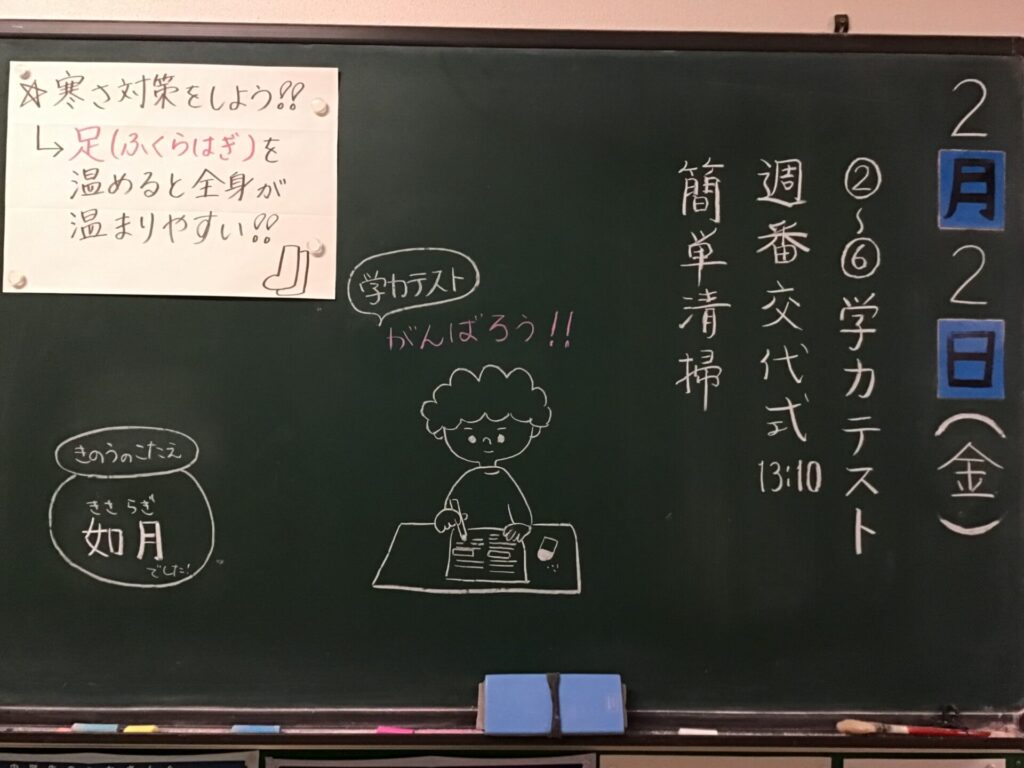 2月2日(金)
②〜⑥学力テスト
週番交代式 13:10
簡単清掃
☆寒さ対策をしよう!!
↳足(ふくらはぎ)を
温めると全身が
温まりやすい!!
学力テスト
がんばろう!!
きのうのこたえ
きさらぎ
如月
でした!